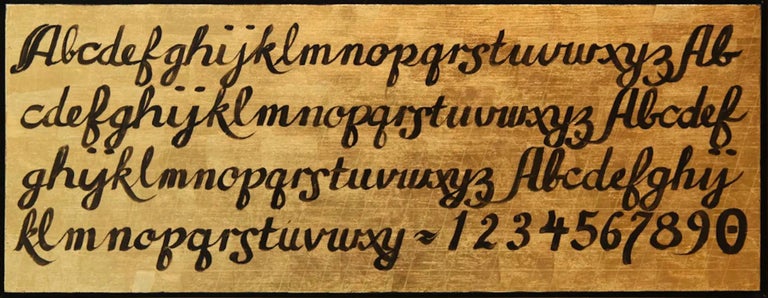 Abcdefghijklmnopqrstuvwxyz Ab
cdefghijklmnopqrstuvwxyz Abcdef
ghijklmnopqrstuvwxyz Abcdefghij
klmnopqrstuvwxy ~ 1234567890